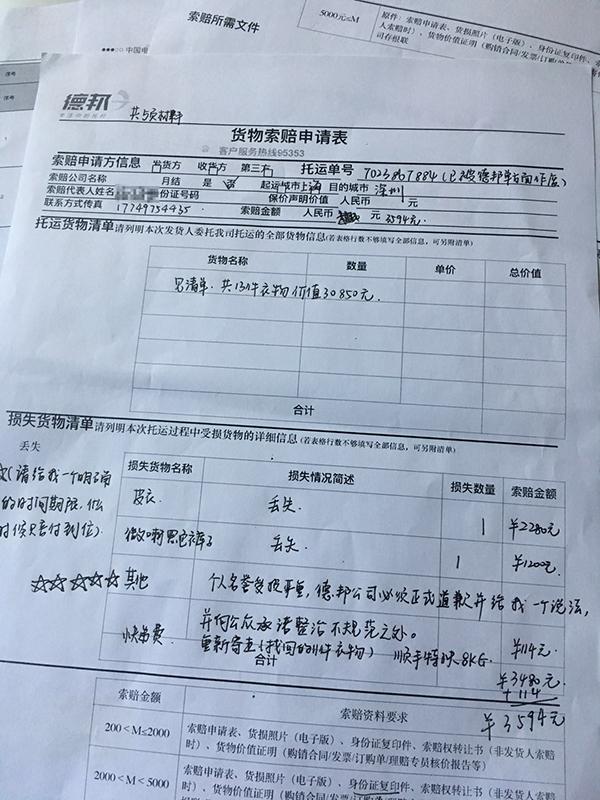 5000元≤M
原件：索赔申请表、货损照片（电子版）、身份证复印件、索
人索赔时）、货物价值证明（购销合同/发票/订购/
司存根联
索赔所需文件
中国电
序号
序号
德邦
共5页材料
货物索赔申请表
客户服务热线95353
索赔申请方信息 发货方 收货方 第三方 托运单号 7023867884(已被德邦单方面作废)
索赔公司名称 月结 是 否 起运城市上海 目的城市 深圳
索赔代表人姓名 份证号码 保价声明价值 人民币 元
联系方式传真 17749754435 索赔金额 人民币 元 3594元.
托运货物清单请列明本次发货人委托我司托运的全部货物信息(若表格行数不够填写全部信息，可另附清单)
货物名称 数量 单价 总价值
另清单.共13件衣物价值30850元.
合计
损失货物清单请列明本次托运过程中受损货物的详细信息(若表格行数不够填写全部信息，可另附清单)
丢失
损失货物名称 损失情况简述 损失数量 索赔金额
(请给我一个明确
的时间期限,什么
时候赔付到位).
皮衣 丢失. 1 ¥2280元
微喇黑色裤子 丢失. 1 ¥1200元.
☆☆☆☆☆ 其他 个人名誉受损严重,德邦公司必须正式道歉并给我一个说法,
并向公众承诺整治不规范之处。
快递费 重新寄送(找回的11件衣物) 顺丰特快8KG. ¥114元
合计
¥3480元.
+114
¥3594元
索赔金额 索赔资料要求
200<M≤2000 索赔申请表、货损照片（电子版）、身份证复印件、索赔权转让书（非发货人索赔
时）、货物价值证明（购销合同/发票/订购单/理赔专员核价报告等）
2000<M<5000 索赔申请表、货损照片（电子版）、身份证复印件、索赔权转让书（非发货人索赔
时）、货物价值证明（购销合同/发票/订购单